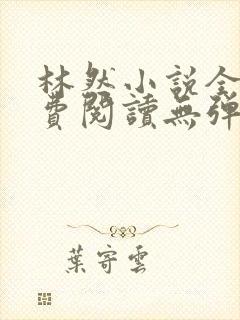 林然小说全
費閱讀無彈
葉寄雲